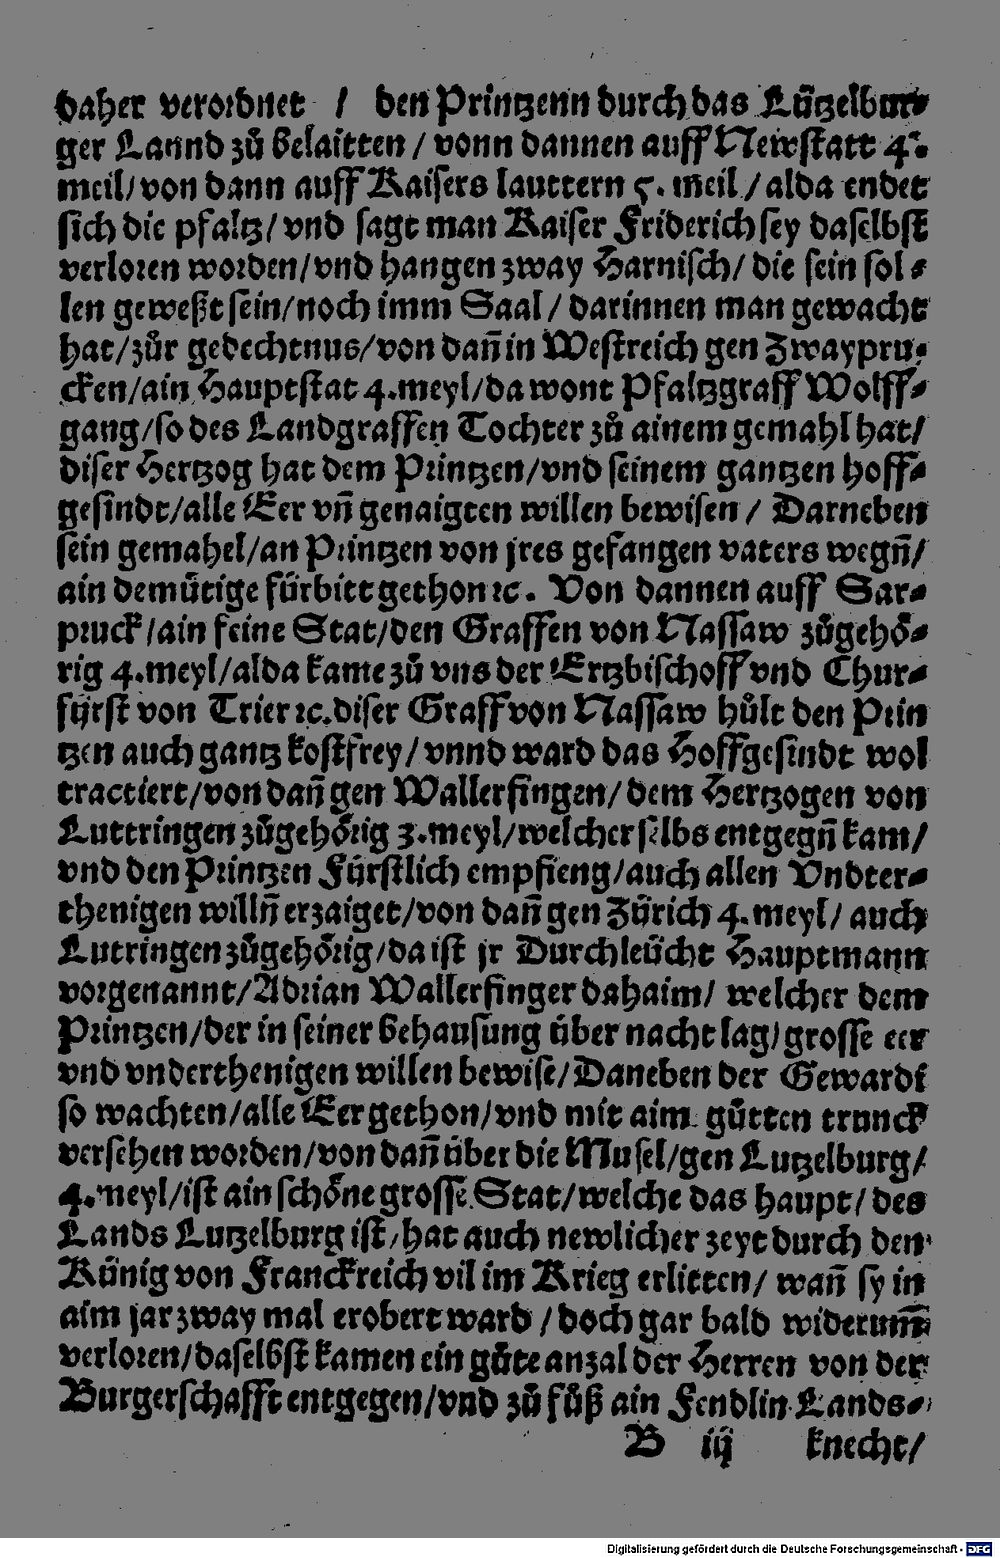 daher verordnet / den Printzenn durch das Lützelbur⸗
ger Lannd zů belaitten / vonn dannen auff Newstatt 4.
meil/ von dann auff Kaisers lauttern 5. meil / alda endet
sich die pfaltz/ vnd sagt man Kaiser Friderich sey daselbst
verloren worden/ vnd hangen zway Harnisch/ die sein sol⸗
len geweßt sein/ noch imm Saal / darinnen man gewacht
hat/ zůr gedechtnus/ von dañ in Westreich gen Zwaypru⸗
cken/ ain Hauptstat 4. meyl/ da wont Pfaltzgraff Wolff⸗
gang/ so des Landgraffen Tochter zů ainem gemahl hat/
diser Hertzog hat dem Printzen/ vnd seinem gantzen hoff⸗
gesindt/ alle Eer vñ genaigten willen bewisen / Darneben
sein gemahel/ an Printzen von jres gefangen vaters wegñ/
ain demütige fürbitt gethon ꝛc. Von dannen auff Sar⸗
pruck / ain feine Stat/ den Graffen von Nassaw zůgehö⸗
rig 4. meyl/ alda kame zů vns der Ertzbischoff vnd Chur⸗
fürst von Trier ꝛc. diser Graff von Nassaw hůlt den Prin
tzen auch gantz kostfrey/ vnnd ward das Hoffgesindt wol
tractiert/ von dañ gen Wallerfingen/ dem Hertzogen von
Luttringen zůgehörig 3. meyl/ welcher selbs entgegñ kam/
vnd den Printzen Fürstlich empfieng/ auch allen Vndter⸗
thenigen willñ erzaiget/ von dañ gen Zürich 4. meyl/ auch
Lutringen zůgehörig/ da ist jr Durchleücht Hauptmann
vorgenannt/ Adrian Wallerfinger dahaim/ welcher dem
Printzen/ der in seiner behausung über nacht lag/ grosse eer
vnd vnderthenigen willen bewise/ Daneben der Gewardi
so wachten/ alle Eer gethon/ vnd mit aim gůtten trunck
versehen worden/ von dañ über die Musel/ gen Lutzelburg/
4. meyl/ ist ain schöne grosse Stat/ welche das haupt/ des
Lands Lutzelburg ist/ hat auch newlicher zeyt durch den
Künig von Franckreich vil im Krieg erlitten/ wañ sy in
aim jar zway mal erobert ward / doch gar bald widerum̃
verloren/ daselbst kamen ein gůte anzal der Herren von der
Burgerschafft entgegen/ vnd zů fůß ain Fendlin Lands⸗
B iij knecht/
Digitalisierung gefördert durch die Deutsche Forschungsgemeinschaft - DFG